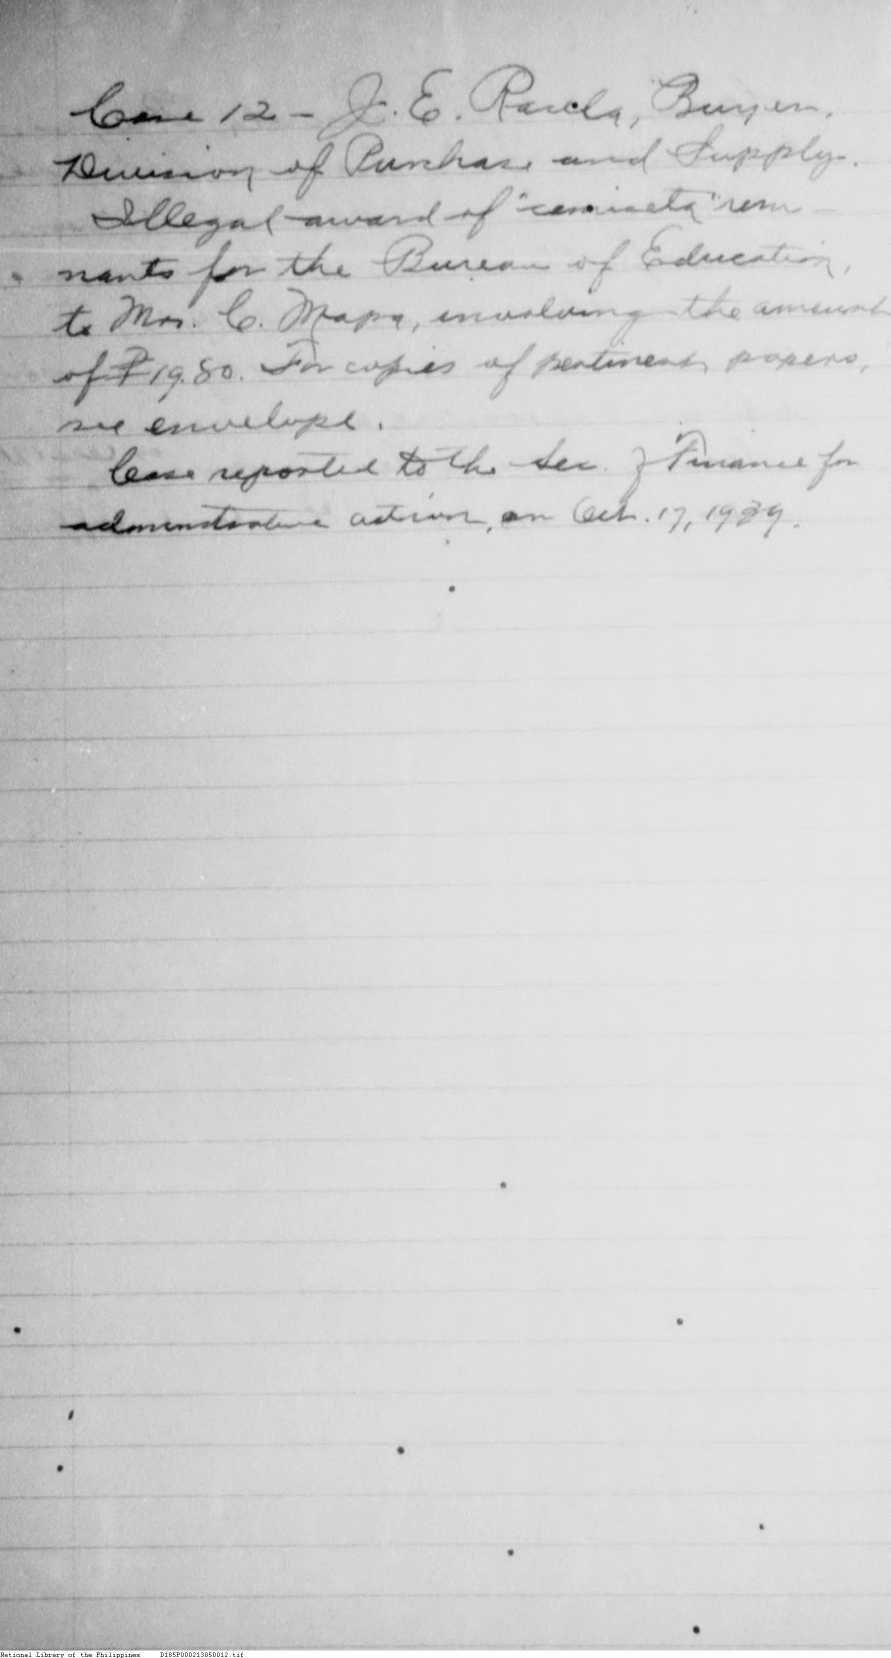 Case 12 - J. E. Rancla, Buyer,
Division of Purchase and Supply.
Illegal award of "camiseta" rem-
nants for the Bureau of Education,
to Mrs. C. Mapa, involving the amount
of ₱19.80. For copies of pertinent papers,
see envelope.
Case reported to the Sec. of Finance for
administrative action, on Oct. 17, 1939.
National Library of the Philippines D185P000213050012.tif